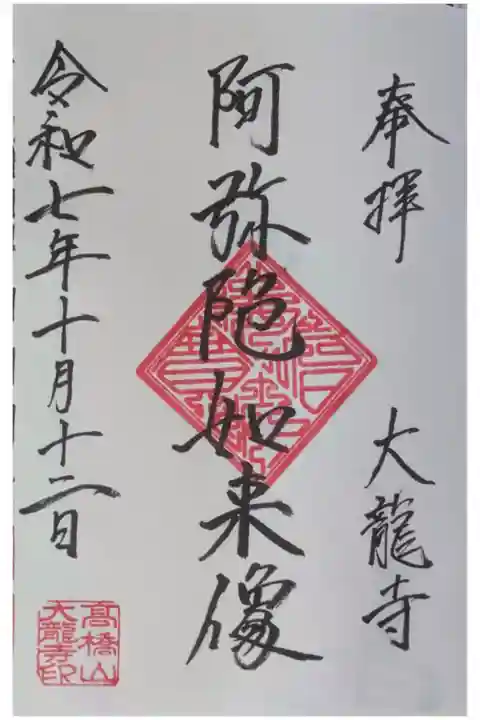 奉拝
大龍寺
阿弥陀如来像
令和七年十月十二日
高橋山
大龍寺印